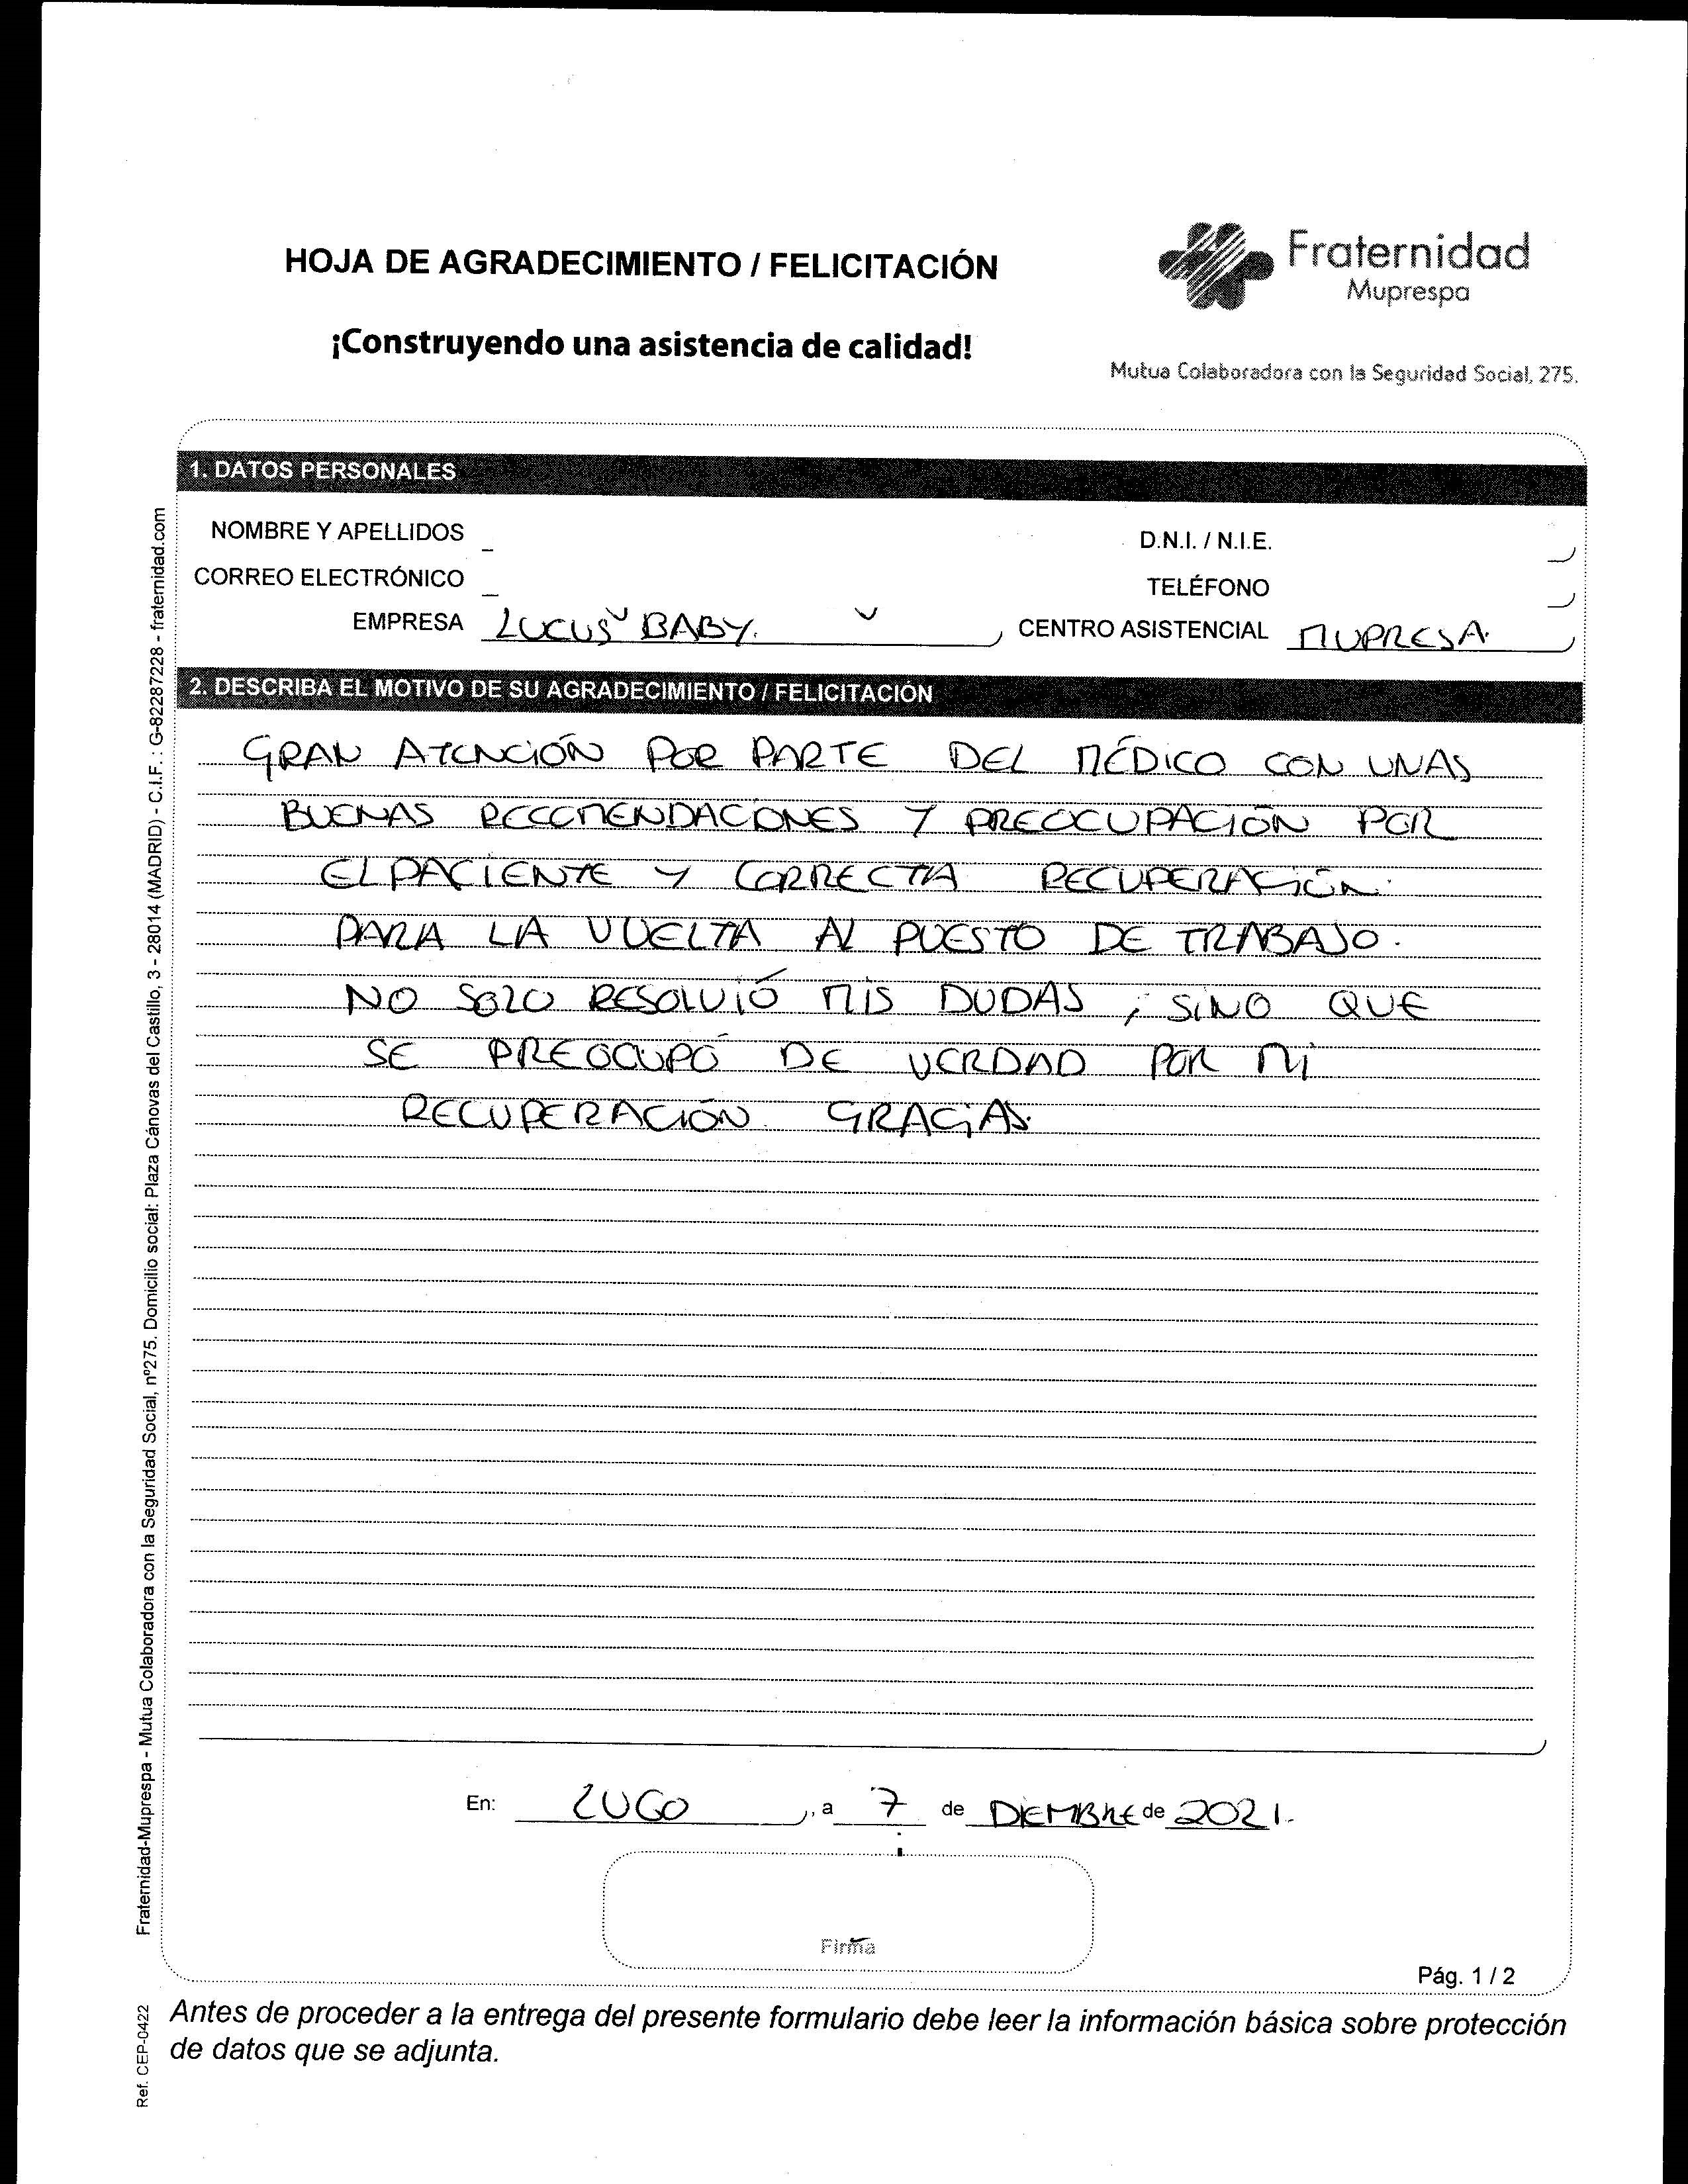 HOJA DE AGRADECIMIENTO / FELICITACIÓN
¡Construyendo una asistencia de calidad!
Fraternidad
Muprespa
Mutua Colaboradora con la Seguridad Social, 275.
1. DATOS PERSONALES
NOMBRE Y APELLIDOS
D.N.I. / N.I.E.
CORREO ELECTRÓNICO
TELÉFONO
EMPRESA LUCUS BABY.
CENTRO ASISTENCIAL MUPRESA.
2. DESCRIBA EL MOTIVO DE SU AGRADECIMIENTO / FELICITACIÓN
GRAN ATENCIÓN POR PARTE DEL MÉDICO CON UNAS
BUENAS RECOMENDACIONES Y PREOCUPACIÓN POR
EL PACIENTE Y CORRECTA RECUPERACIÓN.
PARA LA VUELTA AL PUESTO DE TRABAJO.
NO SOLO RESOLVIÓ MIS DUDAS, SINO QUE
SE PREOCUPÓ DE VERDAD POR MI
RECUPERACIÓN. GRACIAS.
En: LUGO, a 7 de DIEMBRE de 2021.
Firma
Pág. 1 / 2
Antes de proceder a la entrega del presente formulario debe leer la información básica sobre protección
de datos que se adjunta.
Fraternidad-Muprespa - Mutua Colaboradora con la Seguridad Social, nº275. Domicilio social: Plaza Cánovas del Castillo, 3 - 28014 (MADRID) - C.I.F. : G-82287228 - fraternidad.com
Ref. CEP-0422